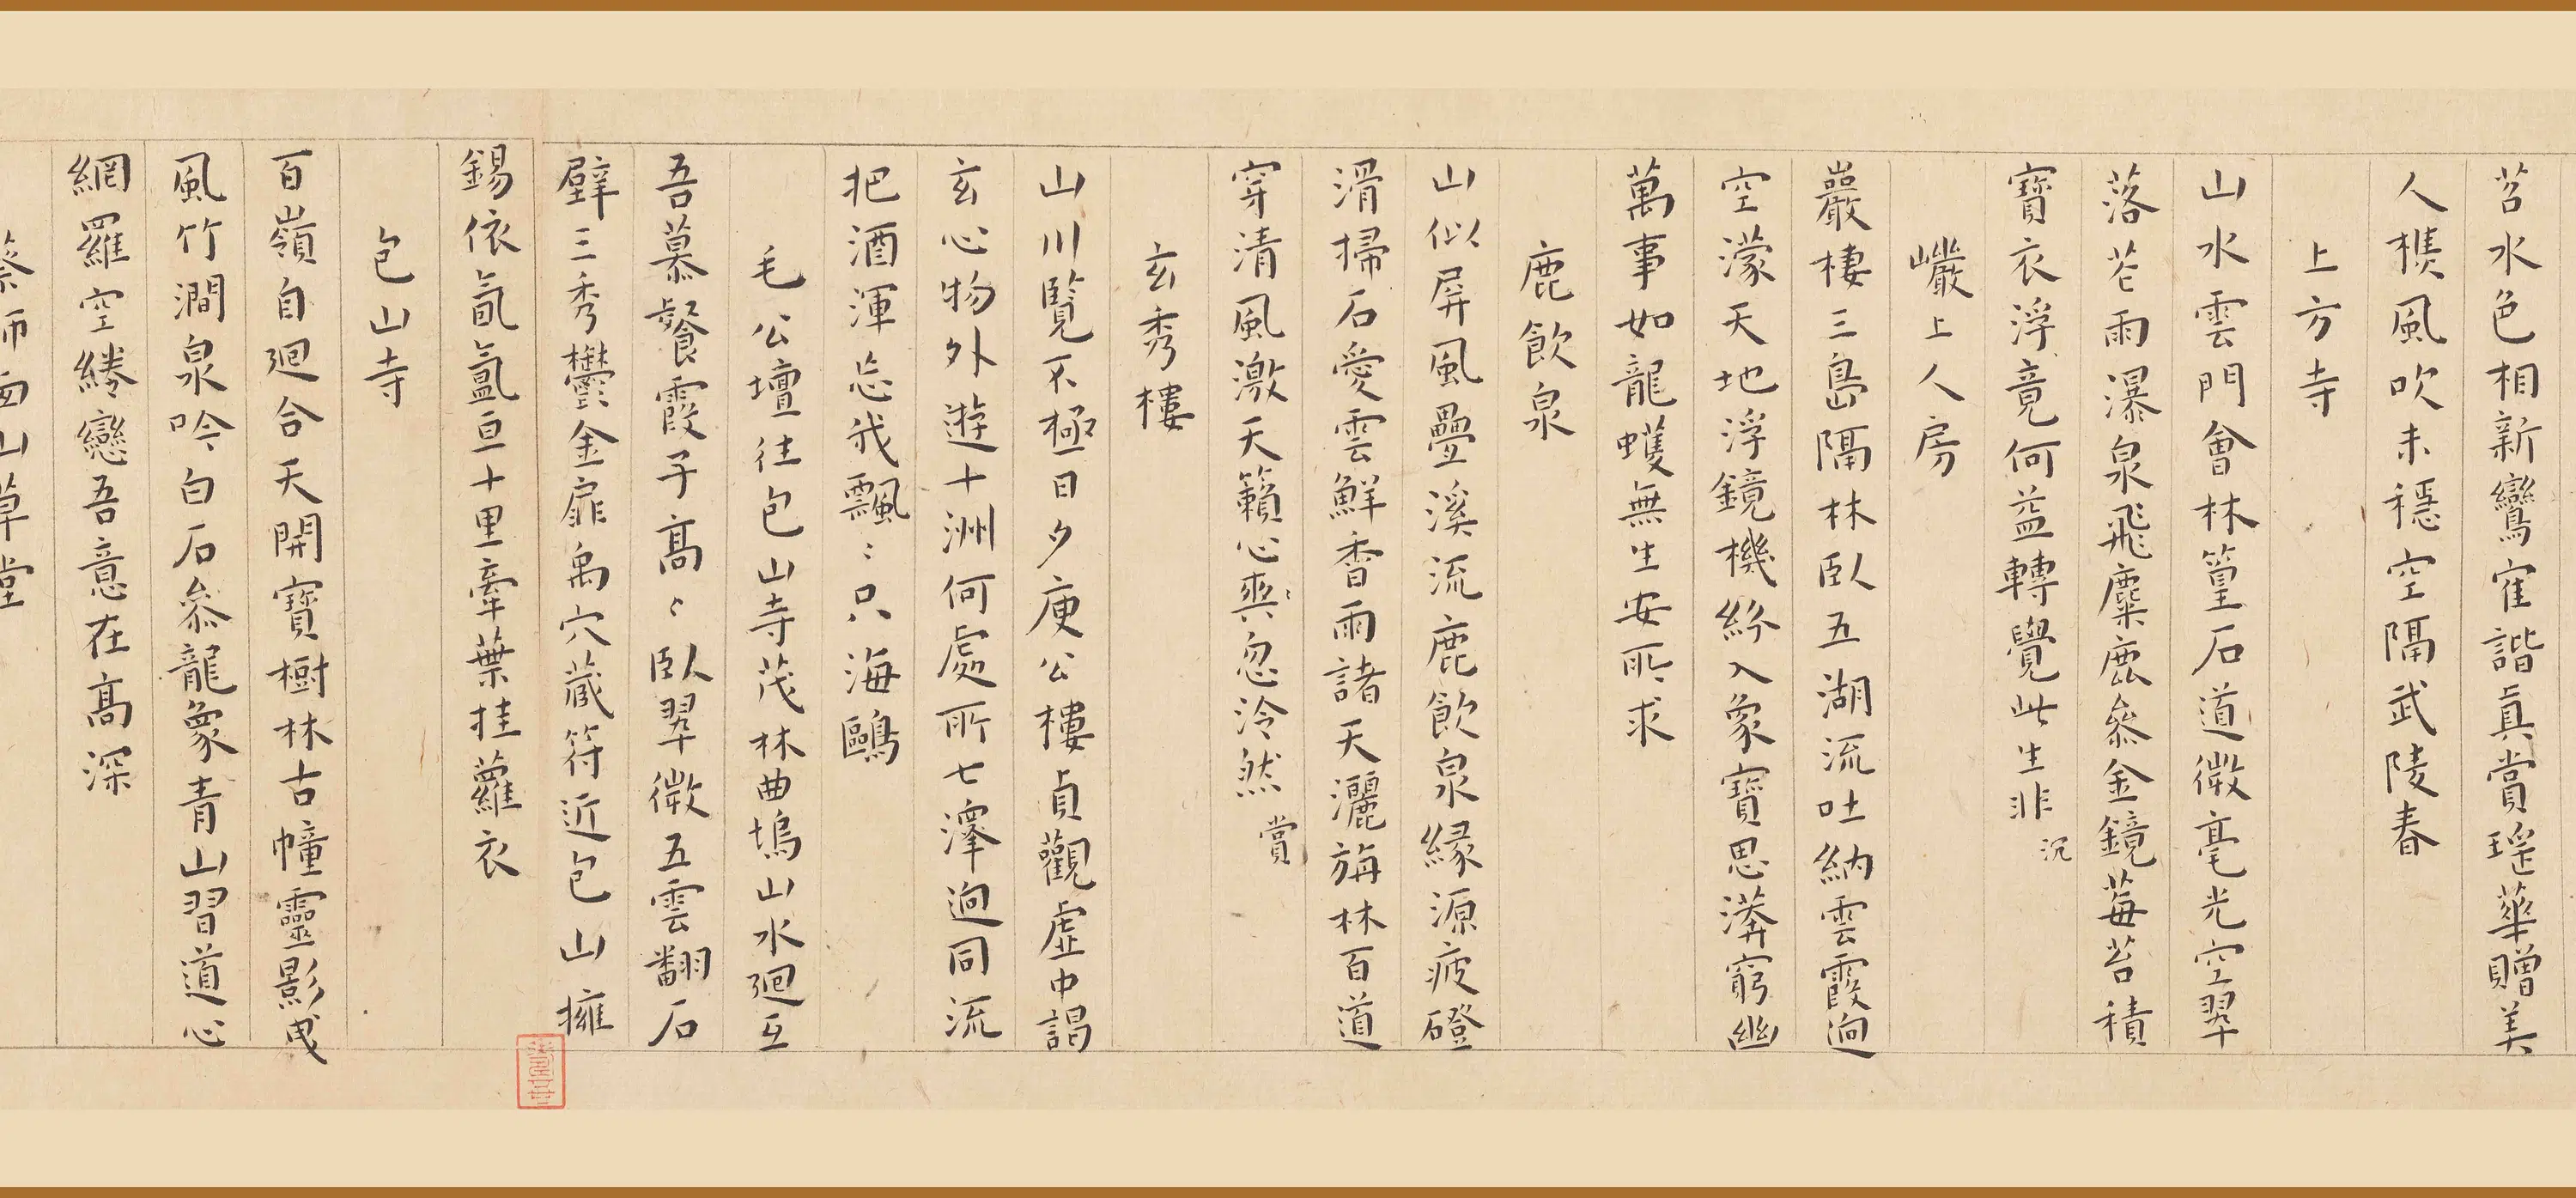 苕水色相新鸞寉諧真賞瑤華贈美
人樵風吹未穩空隔武陵春
上方寺
山水雲門會林篁石道微毫光空翠
落芒雨瀑泉飛麋鹿叅金鏡莓苔積
寶衣浮竟何益轉覺此生非 沉
巗上人房
巖棲三島隔林臥五湖流吐納雲霞迥
空濛天地浮鏡機紛入象寶思漭窮幽
萬事如龍蠖無生安所求
鹿飲泉
山似屏風疊溪流鹿飲泉緣源疲磴
滑掃石愛雲鮮香雨諸天灑旃林百道
穿清風激天籟心爽忽泠然 賞
玄秀樓
山川覽不極日夕庾公樓貞觀虛中謁
玄心物外遊十洲何處所七澤迥同流
把酒渾忘我飄〻只海鷗
毛公壇往包山寺茂林曲塢山水廻互
吾慕餐霞子髙〻臥翠微五雲翻石
壁三秀鬱金扉禹穴藏符近包山擁
錫依氤氳亘十里牽葉挂蘿衣
包山寺
百嶺自廻合天開寶樹林古幢靈影曳
風竹澗泉吟白石叅龍象青山習道心
網羅空綣戀吾意在髙深
蔡師西山草堂